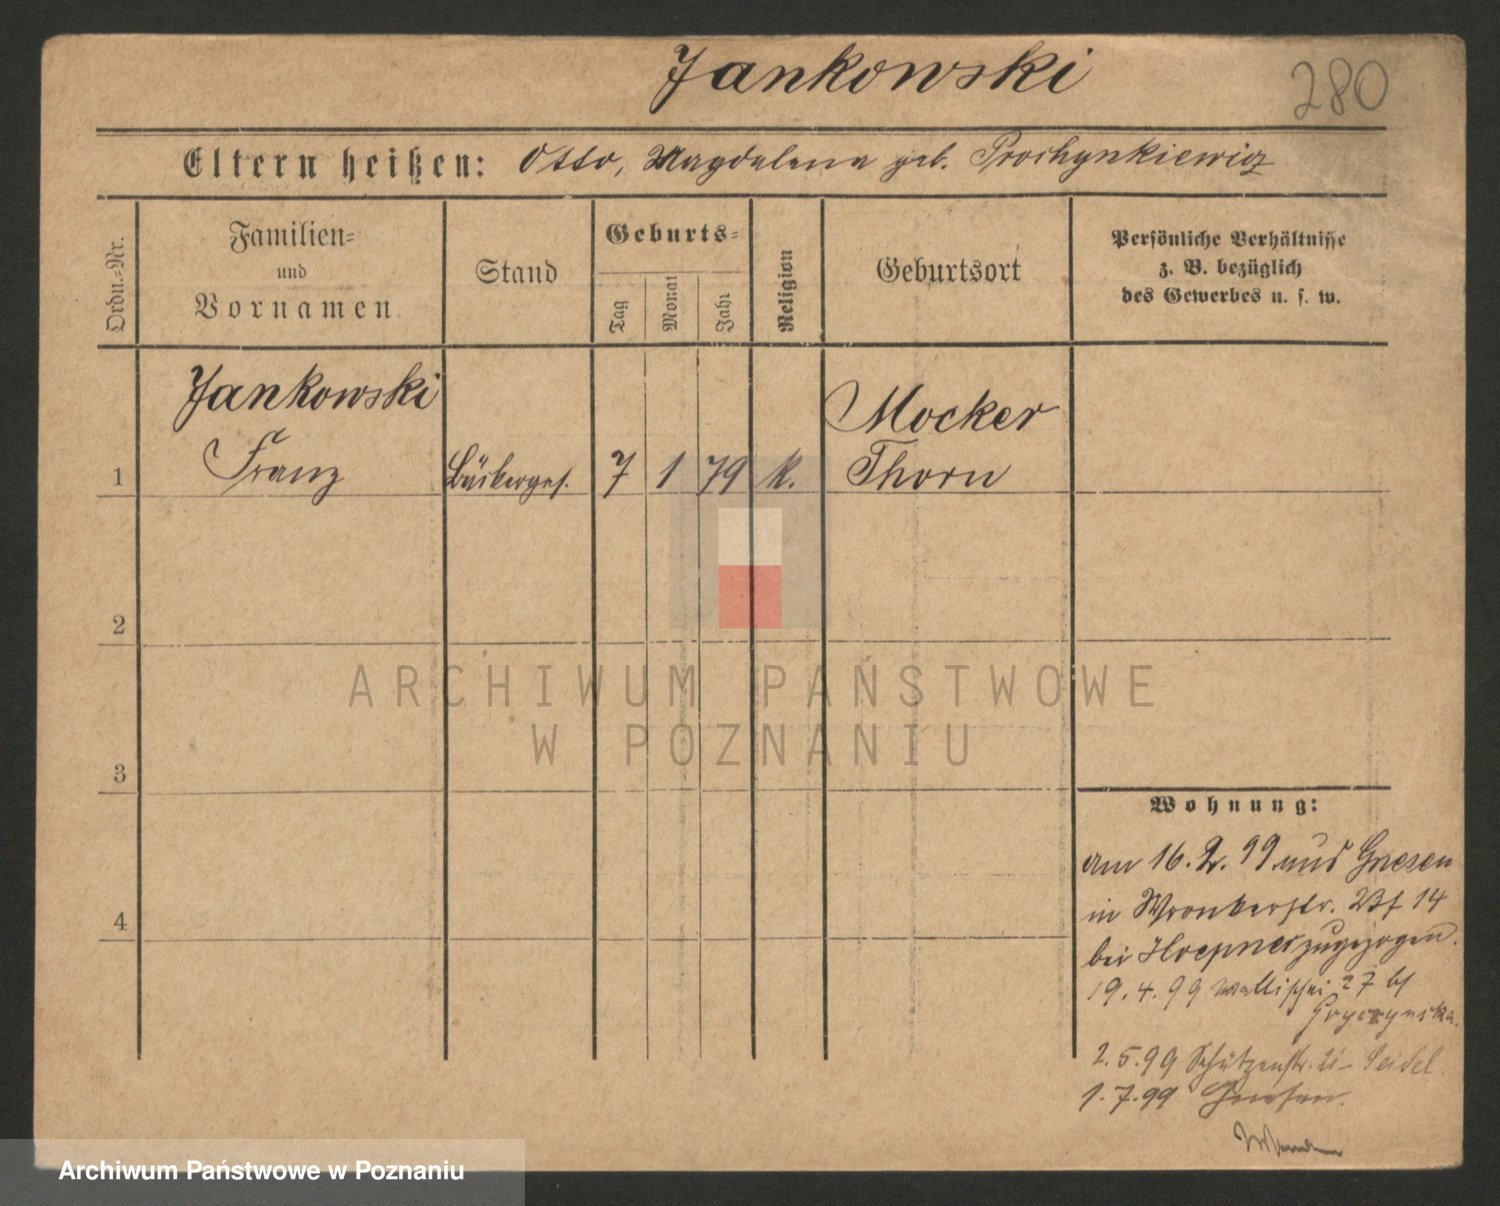 Jankowski
280
Eltern heißen: Otto, Magdalena geb. Prochynkiewicz
Ordn.=Nr.
Familien=
und
Vornamen
Stand
Geburts=
Tag
Monat
Jahr
Religion
Geburtsort
Persönliche Verhältnisse
z. B. bezüglich
des Gewerbes u. s. w.
Jankowski
Franz
Mocker
1 Bäckerges. 7 1 79 k. Thorn
2
ARCHIWUM PAŃSTWOWE
W POZNANIU
3
Wohnung:
am 16. 2. 99 aus Gnesen
in Wronkerstr. 14
4
bei Hoepner zugezogen.
19. 4. 99 Wallischei 27 bf
2. 5. 99 Schützenstr. Seidel
1. 7. 99 Gnesen.
Archiwum Państwowe w Poznaniu